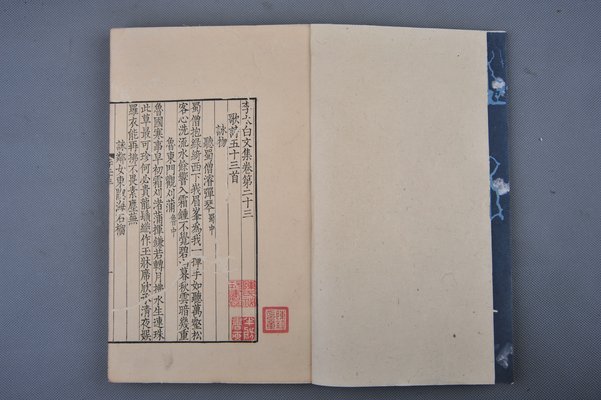 李太白文集卷第二十三
歌詩五十三首
詠物
聽蜀僧濬彈琴 蜀中
蜀僧抱綠綺西下峨眉峯為我一揮手如聽萬壑松
客心洗流水餘響入霜鐘不覺碧山暮秋雲暗幾重
魯東門觀刈蒲 魯中
魯國寒事早初霜刈渚蒲揮鎌若轉月拂水生連珠
此草最可珍何必貴龍鬚織作玉牀席欣承清夜娛
羅衣能再拂不畏素塵蕪
詠鄰女東窓海石榴